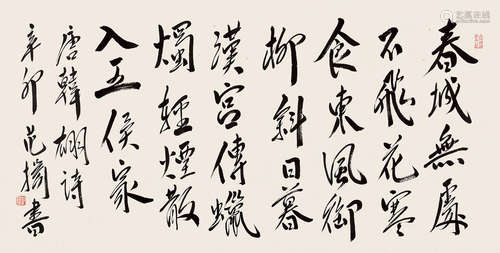 春城無處
不飛花寒
食東風御
柳斜日暮
漢宮傳蠟
燭輕煙散
入五侯家
唐韓翃詩
辛卯范揚書